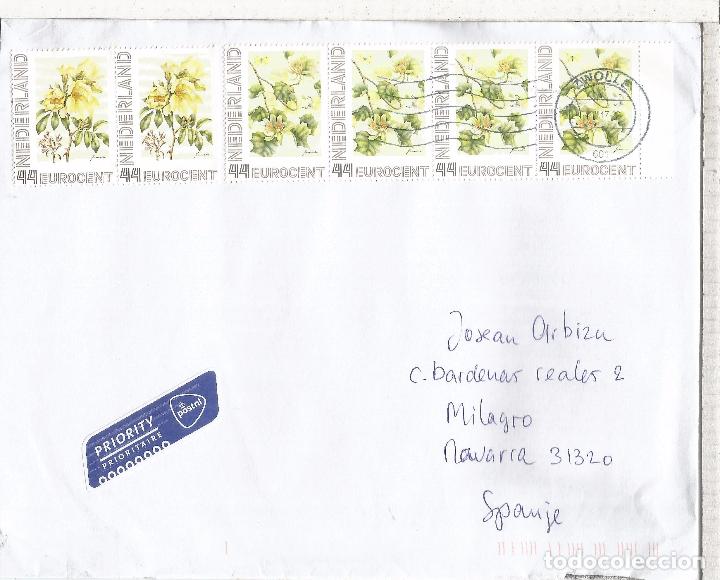 NEDERLAND
44 EUROCENT
NEDERLAND
44 EUROCENT
NEDERLAND
44 EUROCENT
NEDERLAND
44 EUROCENT
NEDERLAND
44 EUROCENT
NEDERLAND
44 EUROCENT
ZWOLLE
Josean Arbizu
c. bardenas reales 2
Milagro
Navarra 31320
Spanje
postnl
PRIORITY
PRIORITAIRE
todocoleccion
todocoleccion.net